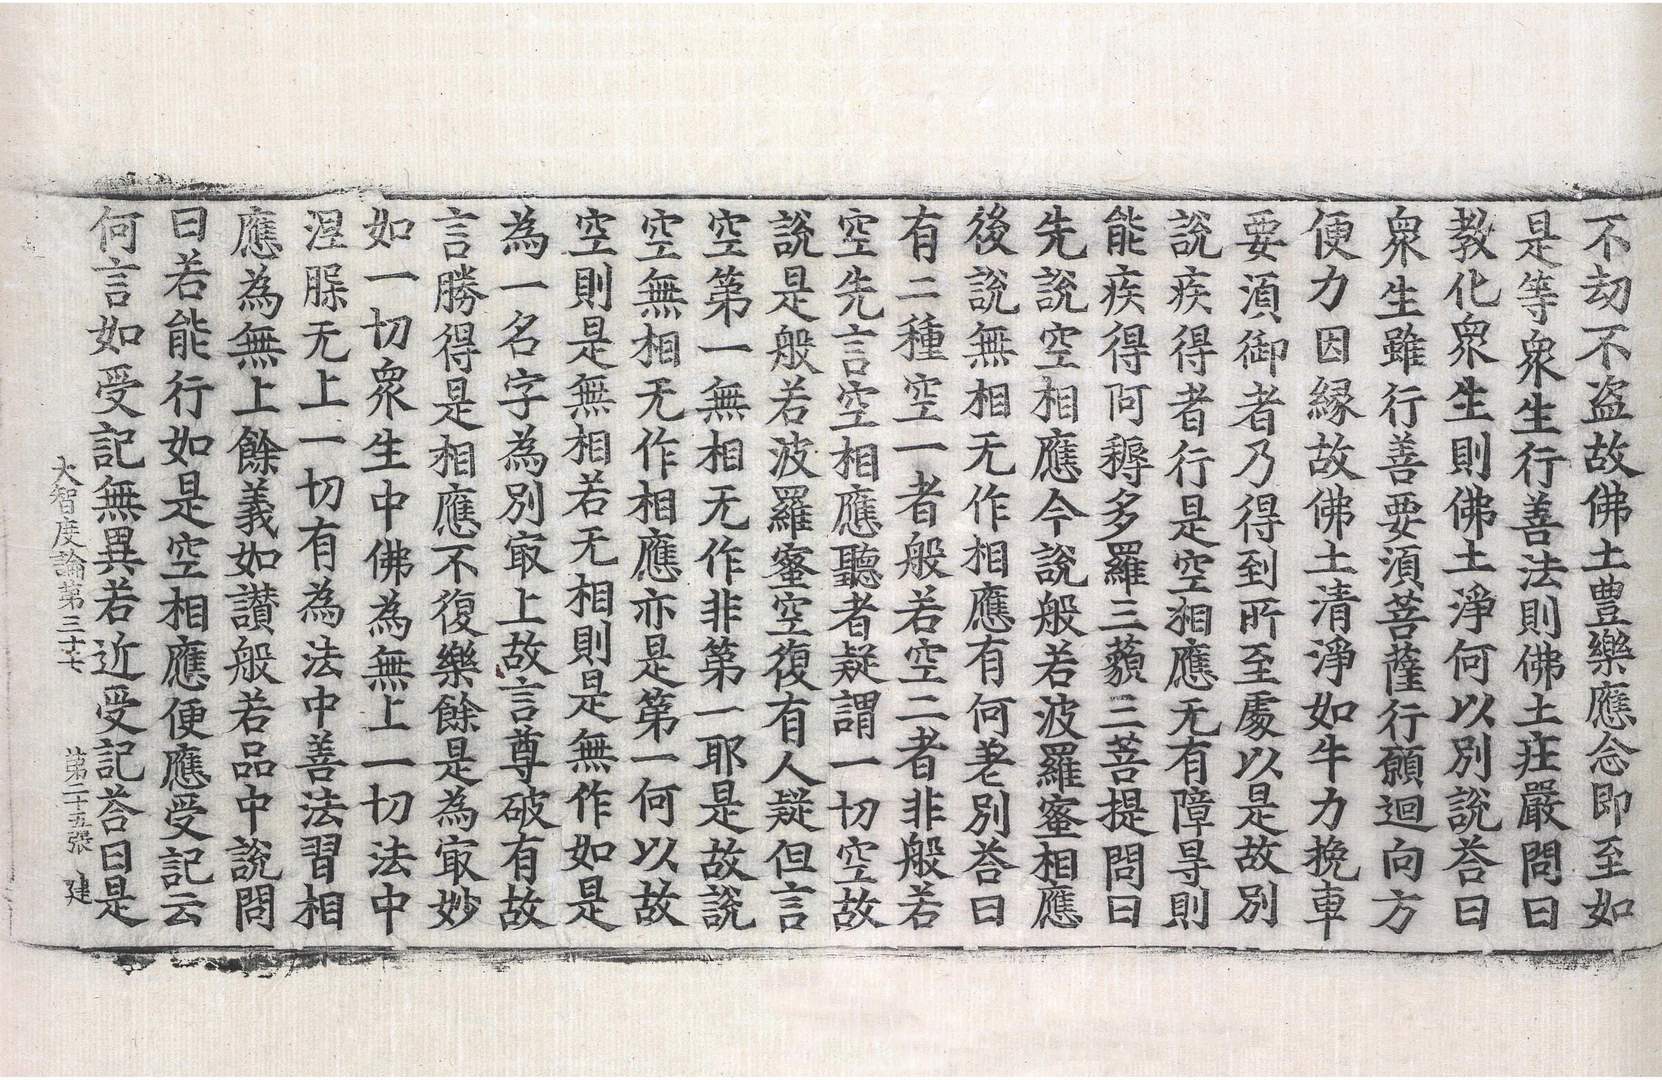 不劫不盗故佛土豊樂應念即至如
是等衆生行善法則佛土庄嚴問曰
教化衆生則佛土淨何以別說荅曰
衆生雖行善要湏菩薩行願迴向方
便力因縁故佛土清淨如牛力挽車
要湏御者乃得到所至處以是故別
說疾得者行是空相應无有障㝵則
能疾得阿耨多羅三藐三菩提問曰
先說空相應今說般若波羅蜜相應
後說無相无作相應有何差別荅曰
有二種空一者般若空二者非般若
空先言空相應聽者疑謂一切空故
說是般若波羅蜜空復有人疑但言
空第一無相无作非第一耶是故說
空無相无作相應亦是第一何以故
空則是無相若无相則是無作如是
為一名字為別㝡上故言尊破有故
言勝得是相應不復樂餘是為㝡妙
如一切衆生中佛為無上一切法中
涅䏶无上一切有為法中善法習相
應為無上餘義如讃般若品中說問
曰若能行如是空相應便應受記云
何言如受記無異若近受記荅曰是
大智度論第三十七 第二十五張 建